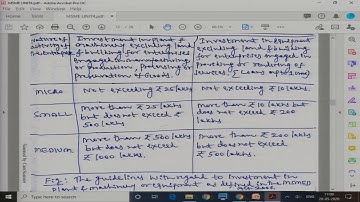 MSME UNIT4.pdf - Adobe Acrobat Pro DC
Nature of activity of the Enterprise
Investment in plant & machinery excluding land & building for enterprises engaged in manufacturing or production, processing or preservation of goods.
Investment in Equipment excluding land & building for enterprises engaged in providing or rendering of services
MICRO
Not exceeding ₹ 25 lakhs
Not exceeding ₹ 10 lakhs.
SMALL
More than ₹ 25 lakhs
but does not exceed ₹
500 lakhs
More than ₹ 10 lakhs but
does not exceed ₹ 200
lakhs
MEDIUM
More than ₹ 500 lakhs
but does not exceed
₹ 1000 lakhs.
More than ₹ 200 lakhs
but does not exceed
₹ 500 lakhs.
Fig: The guidelines with regard to investment in
plant & machinery or equipment as defined in the MSMED